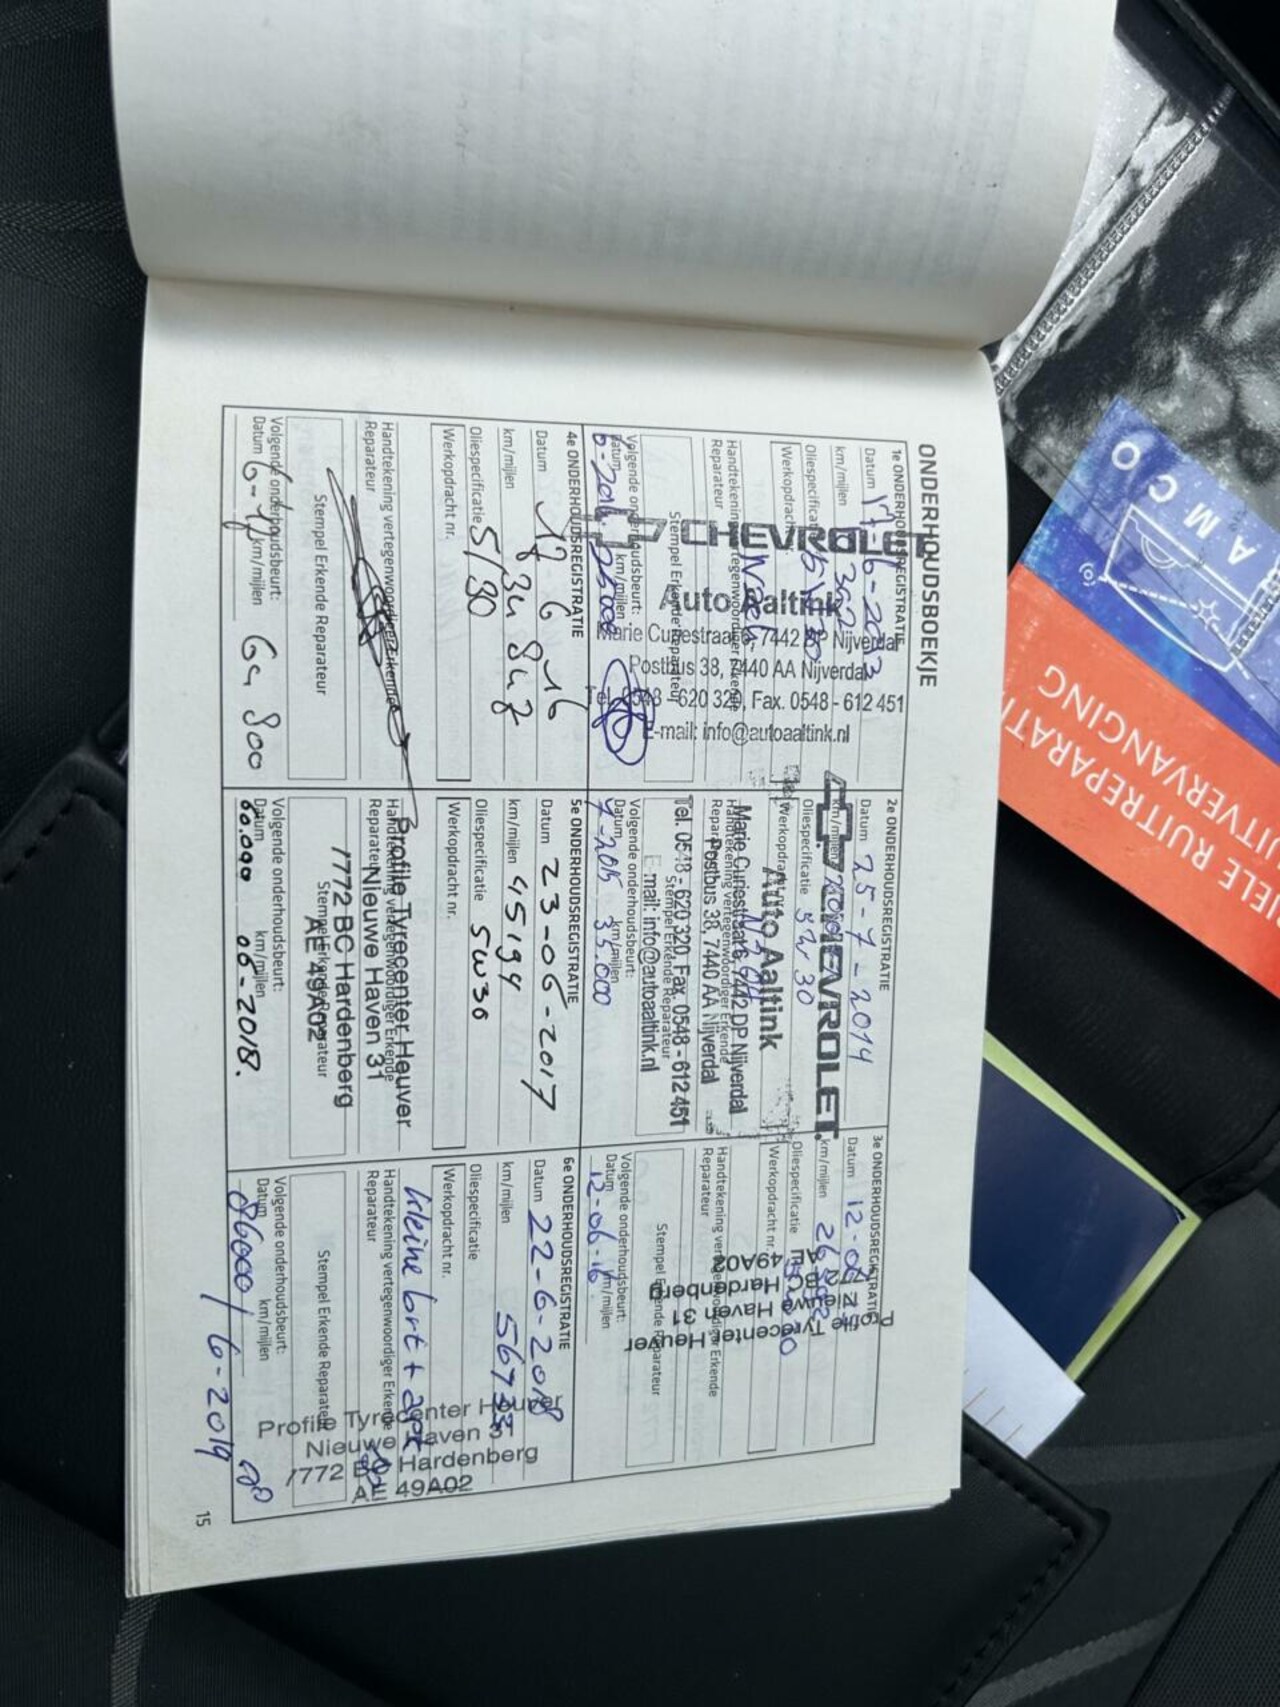 ONDERHOUDSBOEKJE
1e ONDERHOUDSREGISTRATIE
Datum 17-6-2013
km/mijlen
Oliespecificatie
Werkopdracht
Handtekening vertegenwoordiger Erkende
Reparateur
Stempel Erkende Reparateur
CHEVROLET
Auto Aaltink
Marie Curiestraat 6, 7442 DP Nijverdal
Postbus 38, 7440 AA Nijverdal
Tel. 0548 - 620 320, Fax. 0548 - 612 451
E-mail: info@autoaaltink.nl
Volgende onderhoudsbeurt:
Datum km/mijlen
2e ONDERHOUDSREGISTRATIE
Datum 25-7-2014
km/mijlen
Oliespecificatie 5W30
Werkopdracht
Handtekening vertegenwoordiger Erkende
Reparateur
Stempel Erkende Reparateur
CHEVROLET
Auto Aaltink
Marie Curiestraat 6, 7442 DP Nijverdal
Postbus 38, 7440 AA Nijverdal
Tel. 0548 - 620 320, Fax. 0548 - 612 451
E-mail: info@autoaaltink.nl
Volgende onderhoudsbeurt:
Datum km/mijlen
7-2015 35.000
3e ONDERHOUDSREGISTRATIE
Datum
km/mijlen
Oliespecificatie
Werkopdracht nr.
Handtekening vertegenwoordiger Erkende
Reparateur
Stempel Erkende Reparateur
Profile Tyrecenter Heuver
Nieuwe Haven 31
7772 BC Hardenberg
AE 49A02
Volgende onderhoudsbeurt:
Datum km/mijlen
12-06-16
4e ONDERHOUDSREGISTRATIE
Datum 6 16
km/mijlen
Oliespecificatie 5/30
Werkopdracht nr.
Handtekening vertegenwoordiger Erkende
Reparateur
Stempel Erkende Reparateur
Volgende onderhoudsbeurt:
Datum 6-17 km/mijlen 64 800
5e ONDERHOUDSREGISTRATIE
Datum 23-06-2017
km/mijlen 45194
Oliespecificatie 5W30
Werkopdracht nr.
Handtekening vertegenwoordiger Erkende
Reparateur
Stempel Erkende Reparateur
Profile Tyrecenter Heuver
Nieuwe Haven 31
7772 BC Hardenberg
AE 49A02
Volgende onderhoudsbeurt:
Datum km/mijlen
60.000 06-2018.
6e ONDERHOUDSREGISTRATIE
Datum 22-6-2018
km/mijlen 56733
Oliespecificatie
Werkopdracht nr.
kleine bort + apk
Handtekening vertegenwoordiger Erkende
Reparateur
Stempel Erkende Reparateur
Profile Tyrecenter Heuver
Nieuwe Haven 3
7772 BC Hardenberg
AE 49A02
Volgende onderhoudsbeurt:
Datum km/mijlen
86000 / 6-2019
15
AMCO
RUITREPARATI
ITVERVANGING